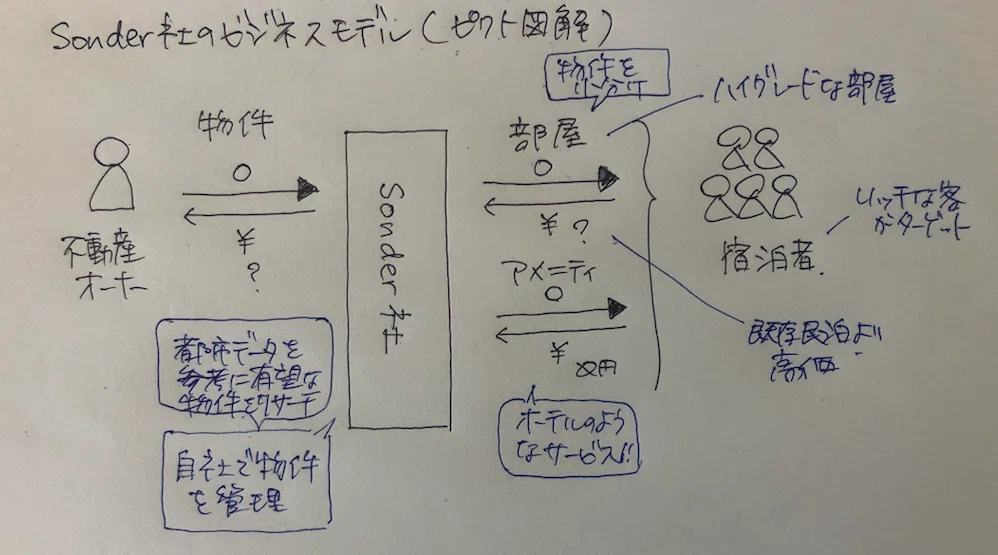 Sonder社のビジネスモデル(ピクト図解)
物件を
小分け
ハイグレードな部屋
物件
部屋
¥
?
¥ ?
不動産
オーナー
Sonder社
リッチな客
がターゲット
宿泊者.
アメニティ
¥
既存民泊より
高価
都市データを
参考に有望な
物件をリサーチ
自社で物件
を管理
ホテルのよう
なサービス!!